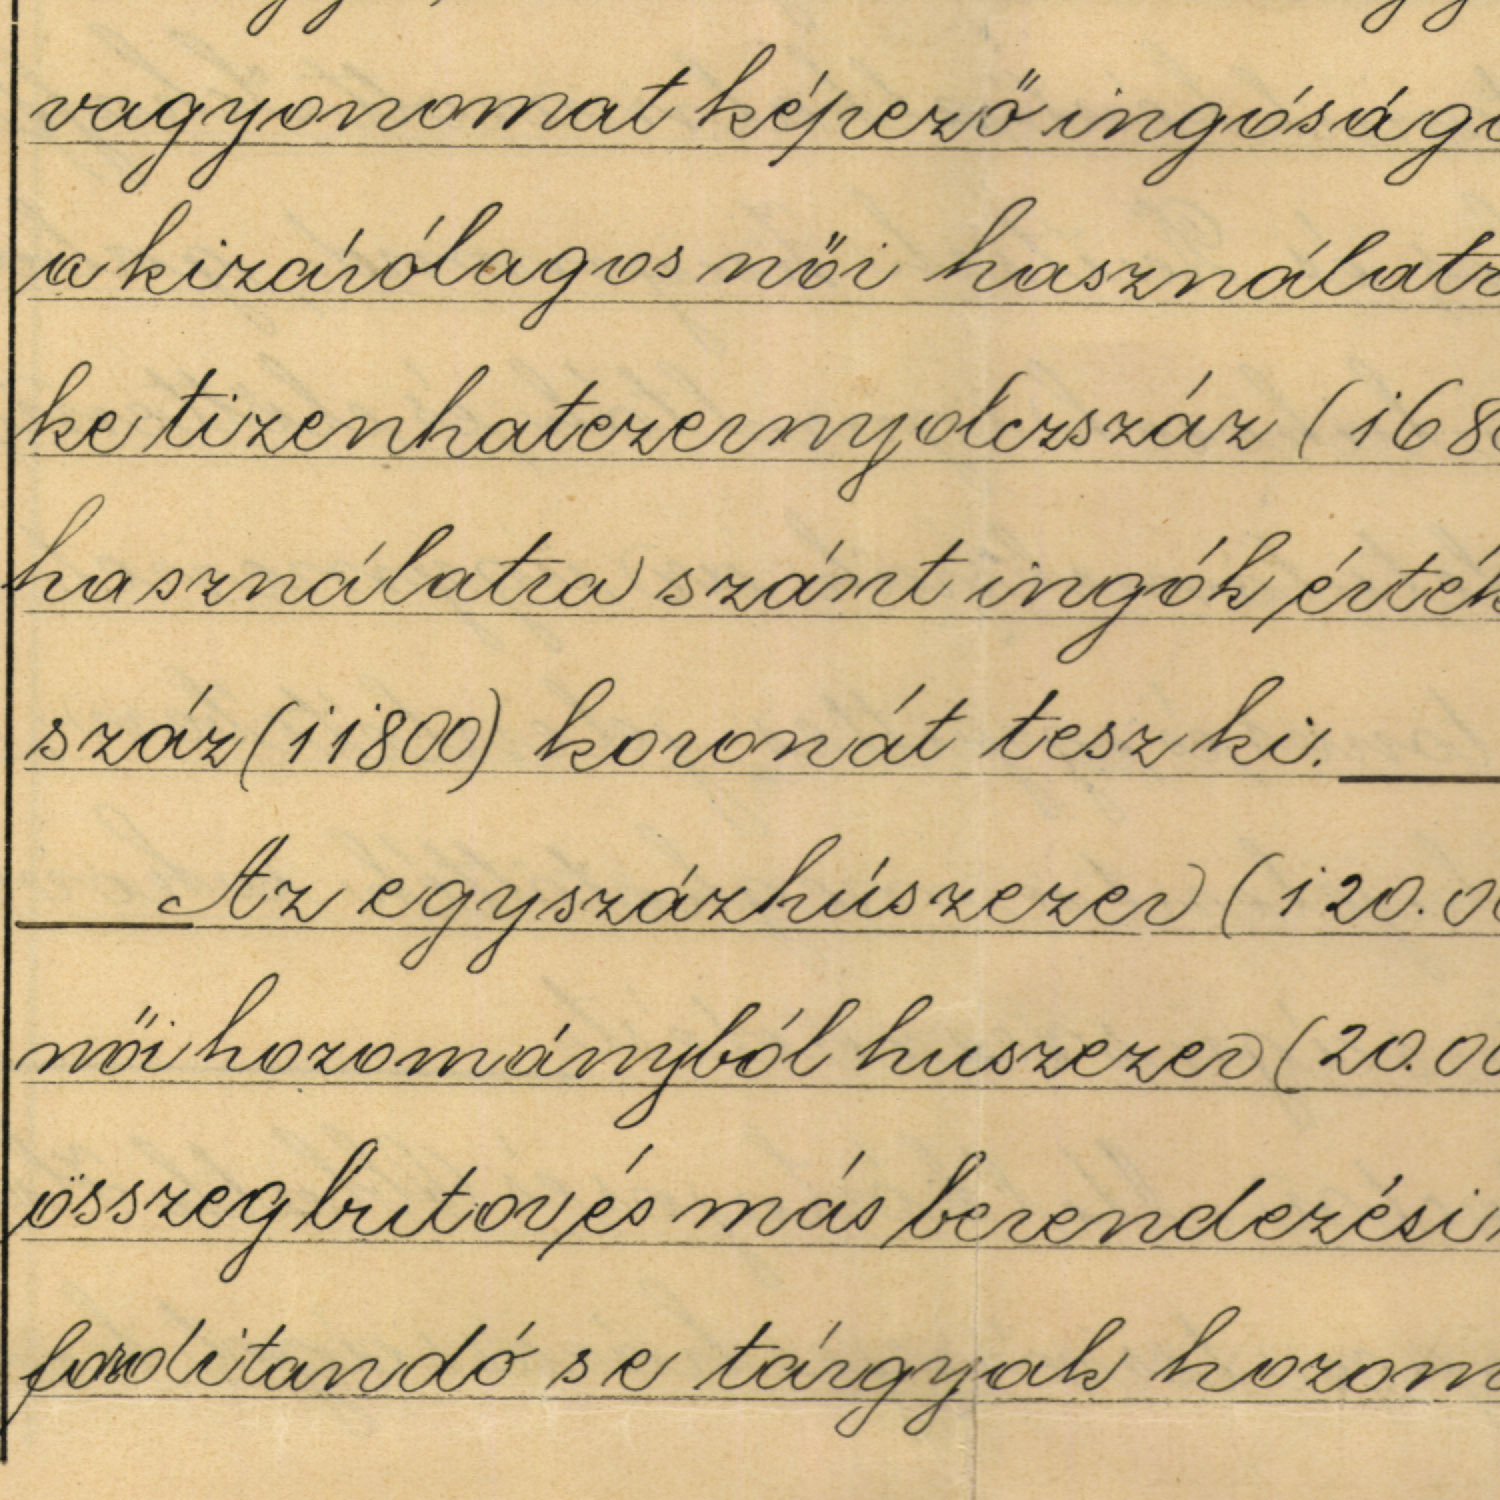 vagyonomat képező ingóságo
a kizárólagos női használatr
ke tizenhatezernyolczszáz (1680
használatra szánt ingók érték
száz (11800) koronát tesz ki.
Az egyszázhúszezer (120.00
női hozományból huszezer (20.00
összeg butor és más berendezési
forditandó s e tárgyak hozom